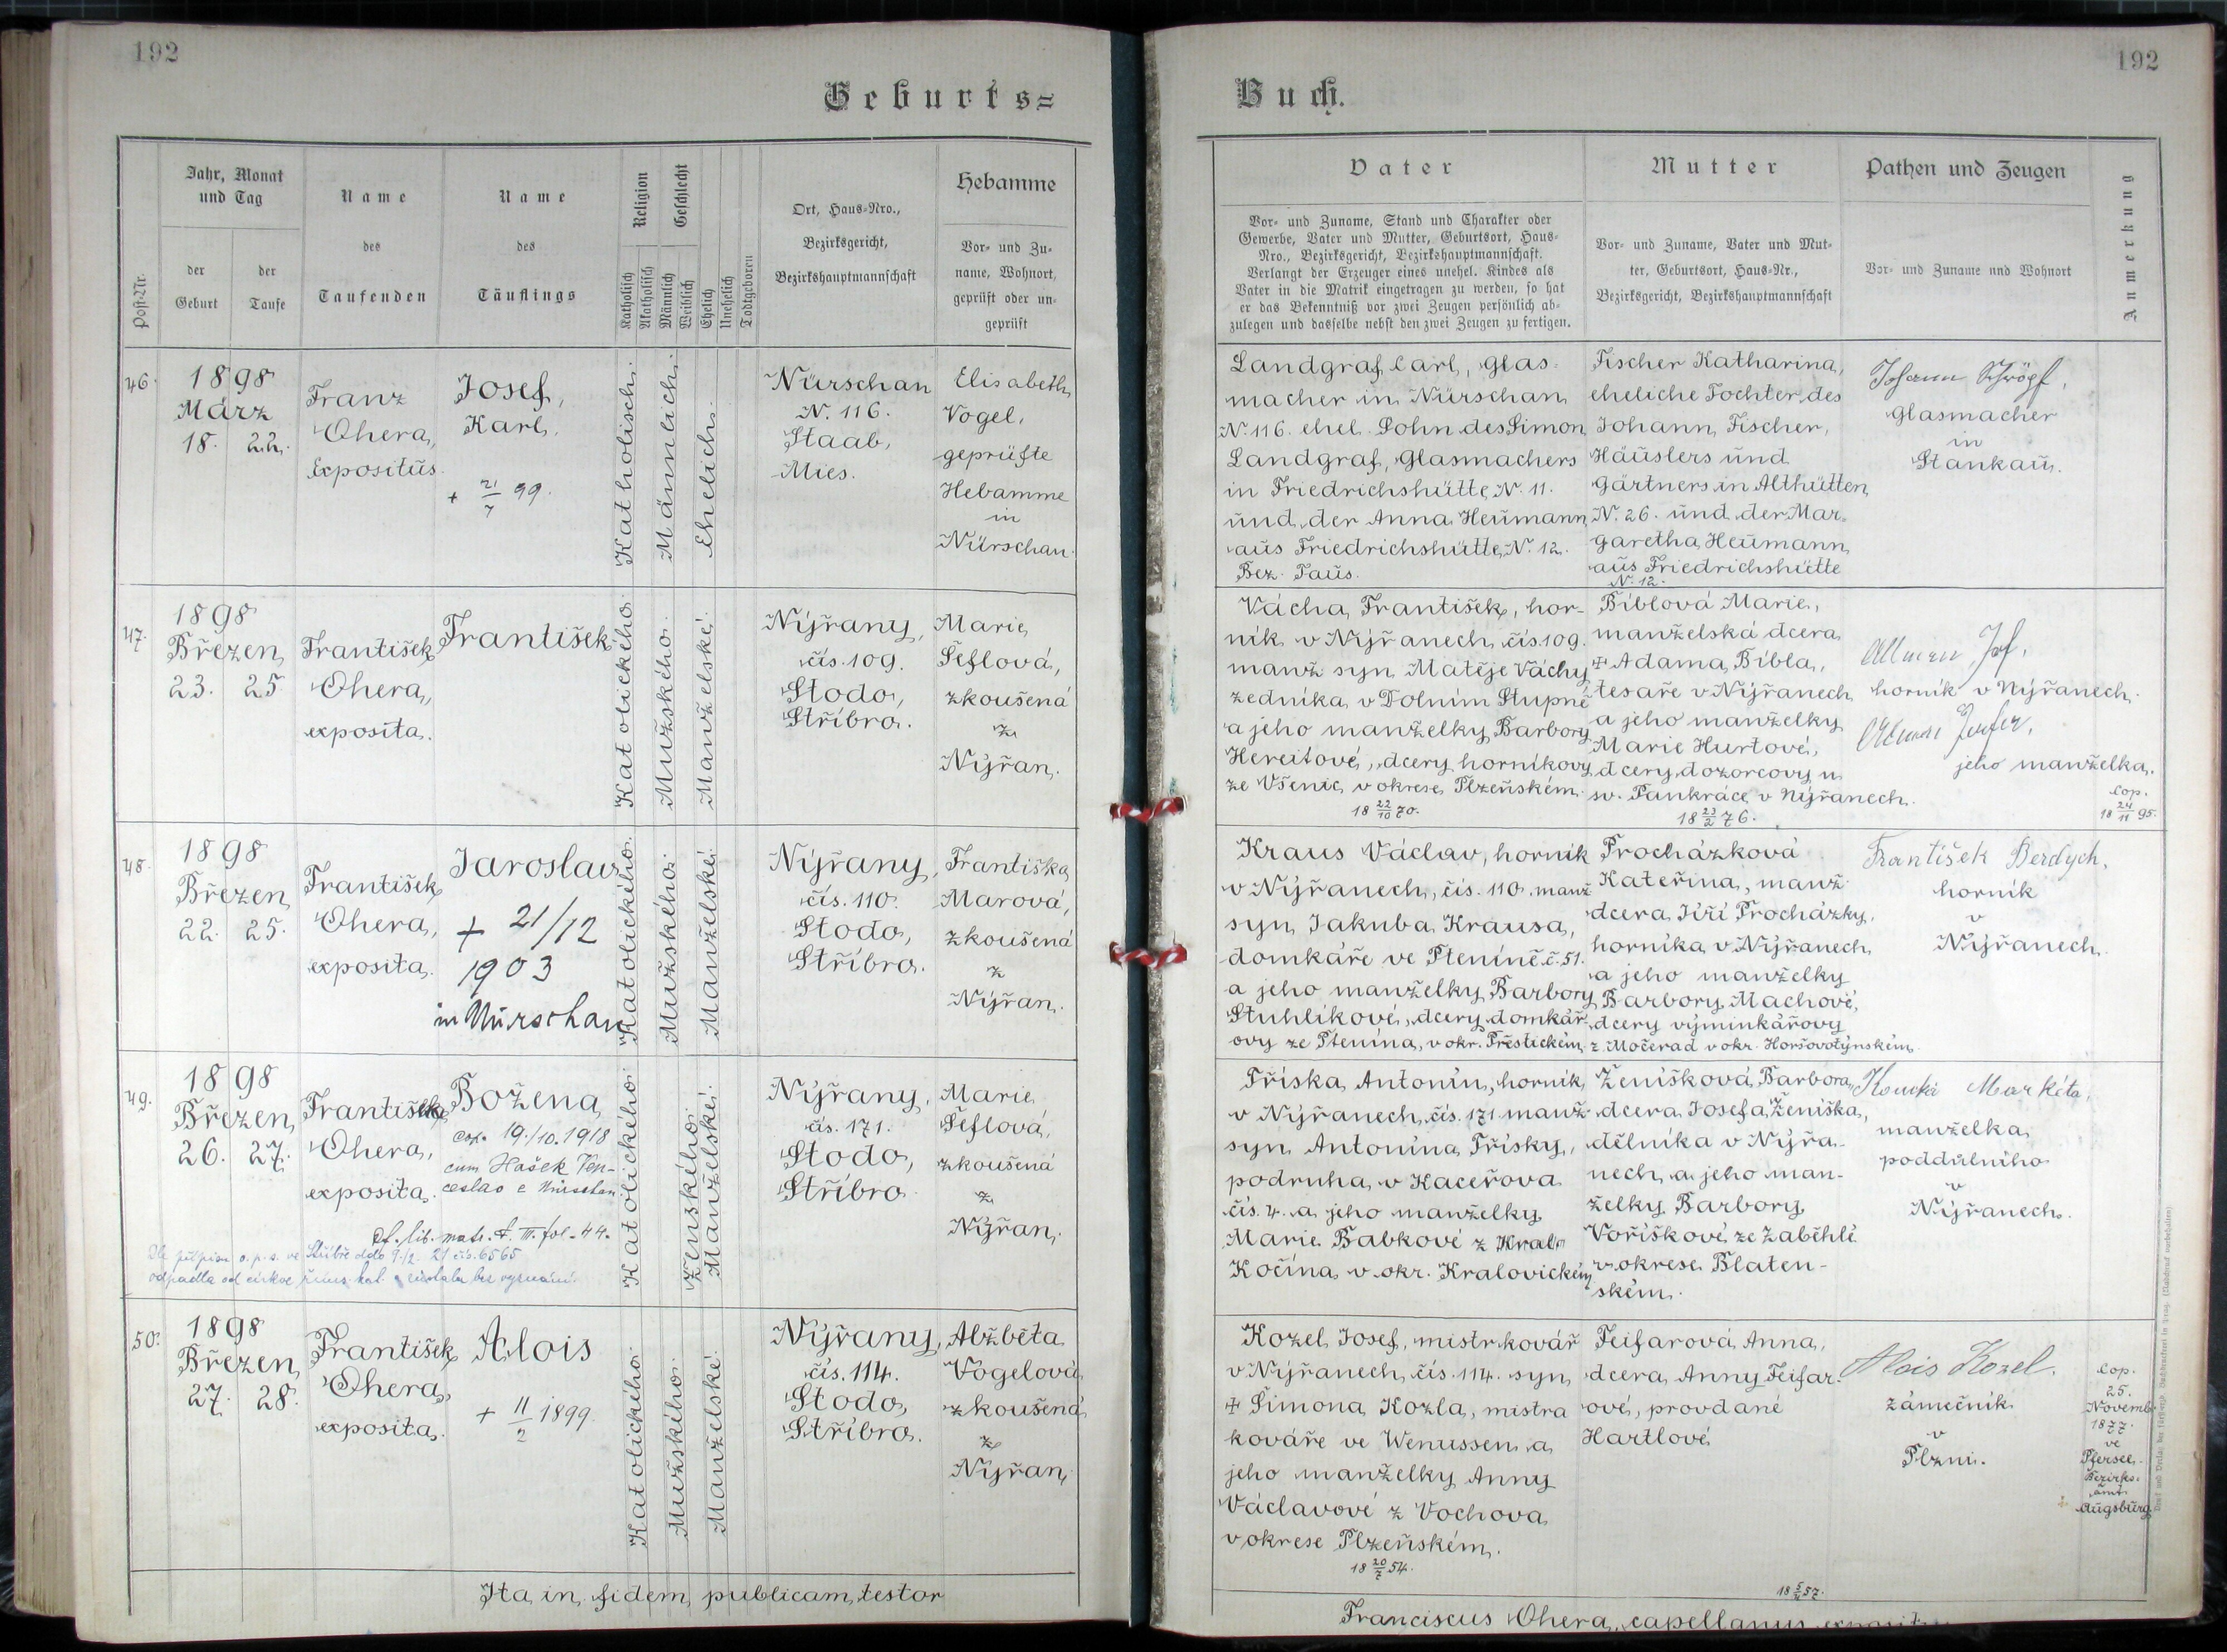 192
Geburts=
Post-Nr.
Jahr, Monat
und Tag
der
Geburt
der
Taufe
Name
des
Taufenden
Name
des
Täuflings
Religion
Katholisch
Akatholisch
Geschlecht
Männlich
Weiblich
Ehelich
Unehelich
Todtgeboren
Ort, Haus-Nro.,
Bezirksgericht,
Bezirkshauptmannschaft
Hebamme
Vor- und Zu-
name, Wohnort,
geprüft oder un-
geprüft
46.
1898
März
18. 22.
Franz
Ohera,
Expositus.
Josef,
Karl.
+ 21/7 99.
Katholisch.
Männlich.
Ehelich.
Nürschan
N. 116.
Staab,
Mies.
Elisabeth
Vogel,
geprüfte
Hebamme
in
Nürschan.
47.
1898
Březen
23. 25.
František
Ohera,
exposita.
František
Katolického.
Mužského.
Manželské.
Nýřany,
čís. 109.
Stodo,
Stříbro.
Marie
Šeflová,
zkoušená
z
Nýřan.
48.
1898
Březen
22. 25.
František
Ohera,
exposita.
Jaroslav
+ 21/12
1903
in Nürschan
Katolického.
Mužského.
Manželské.
Nýřany,
čís. 110.
Stodo,
Stříbro.
Františka
Marová,
zkoušená
z
Nýřan.
49.
1898
Březen
26. 27.
František
Ohera,
exposita.
Božena
cop. 19./10. 1918
cum Hašek Ven-
ceslao e Nürschan.
Cf. lib. matr. t. III. fol. 44.
Dle přípisu o. p. s. ve Stříbře ddo 9./2. 21 čís. 6565
odpadla od církve řím. kat. a zůstala bez vyznání.
Katolického.
Ženského.
Manželské.
Nýřany,
čís. 171.
Stodo,
Stříbro.
Marie
Šeflová,
zkoušená
z
Nýřan.
50.
1898
Březen
27. 28.
František
Ohera,
exposita.
Alois
+ 11/2 1899.
Katolického.
Mužského.
Manželské.
Nýřany,
čís. 114.
Stodo,
Stříbro.
Alžběta
Vogelová,
zkoušená
z
Nýřan.
Ita in fidem publicam testor
192
Buch.
Vater
Vor- und Zuname, Stand und Charakter oder
Gewerbe, Vater und Mutter, Geburtsort, Haus-
Nro., Bezirksgericht, Bezirkshauptmannschaft.
Verlangt der Erzeuger eines unehel. Kindes als
Vater in die Matrik eingetragen zu werden, so hat
er das Bekenntniß vor zwei Zeugen persönlich ab-
zulegen und dasselbe nebst den zwei Zeugen zu fertigen.
Mutter
Vor- und Zuname, Vater und Mut-
ter, Geburtsort, Haus-Nr.,
Bezirksgericht, Bezirkshauptmannschaft
Pathen und Zeugen
Vor- und Zuname und Wohnort
Anmerkung
Landgraf Carl, Glas-
macher in Nürschan
N. 116. ehel. Sohn des Simon
Landgraf, Glasmachers
in Friedrichshütte N. 11.
und der Anna Heumann
aus Friedrichshütte N. 12.
Bez. Taus.
Fischer Katharina,
eheliche Tochter des
Johann Fischer,
Häuslers und
Gärtners in Althütten
N. 26. und der Mar-
garetha Heumann
aus Friedrichshütte
N. 12.
Johann Schrögl,
Glasmacher
in
Stankau.
Vácha František, hor-
ník v Nýřanech čís. 109.
manž. syn Matěje Váchy
zedníka v Dolním Stupně
a jeho manželky Barbory
Hereitové, dcery horníkovy
ze Všenic, v okrese Plzeňském.
18 22/10 70.
Bíblová Marie,
manželská dcera
+ Adama Bíbla,
tesaře v Nýřanech
a jeho manželky
Marie Hurtové,
dcery dozorcovy u
sv. Pankráce v Nýřanech.
18 23/2 76.
horník v Nýřanech.
jeho manželka.
Cop.
18 24/11 95.
Kraus Václav, horník
v Nýřanech, čís. 110. manž.
syn Jakuba Krausa,
domkáře ve Ptenině č. 51.
a jeho manželky Barbory
Stuhlíkové, dcery domkář-
ovy ze Ptenína, v okr. Přeštickém
Procházková
Kateřina, manž.
dcera Jiří Procházky,
horníka v Nýřanech
a jeho manželky
Barbory Machové,
dcery výminkářovy
z Močerad v okr. Horšovotýnském.
František Berdych,
horník
v
Nýřanech.
Tříska Antonín, horník
v Nýřanech, čís. 171. manž.
syn Antonína Třísky,
podruha v Kaceřova
čís. 4. a jeho manželky
Marie Babkové z Kral
Kočína v okr. Kralovickém
Ženíšková Barbora,
dcera Josefa Ženíška,
dělníka v Nýřa-
nech a jeho man-
želky Barbory
Voříškové ze Záběhlé
v okrese Blaten-
ském.
Markéta,
manželka
poddůlního
v
Nýřanech.
Kozel Josef, mistr kovář
v Nýřanech, čís. 114. syn
+ Šimona Kozla, mistra
kováře ve Wenussen a
jeho manželky Anny
Václavové z Vochova
v okrese Plzeňském.
18 20/7 54.
Feifarová Anna,
dcera Anny Feifar-
ové, provdané
Hartlové.
Alois Kozel.
zámečník
v
Plzni.
Cop.
25.
Novemb.
1877.
ve
Pfersee
Bezirks-
amt
Augsburg
Franciscus Ohera, capellanus